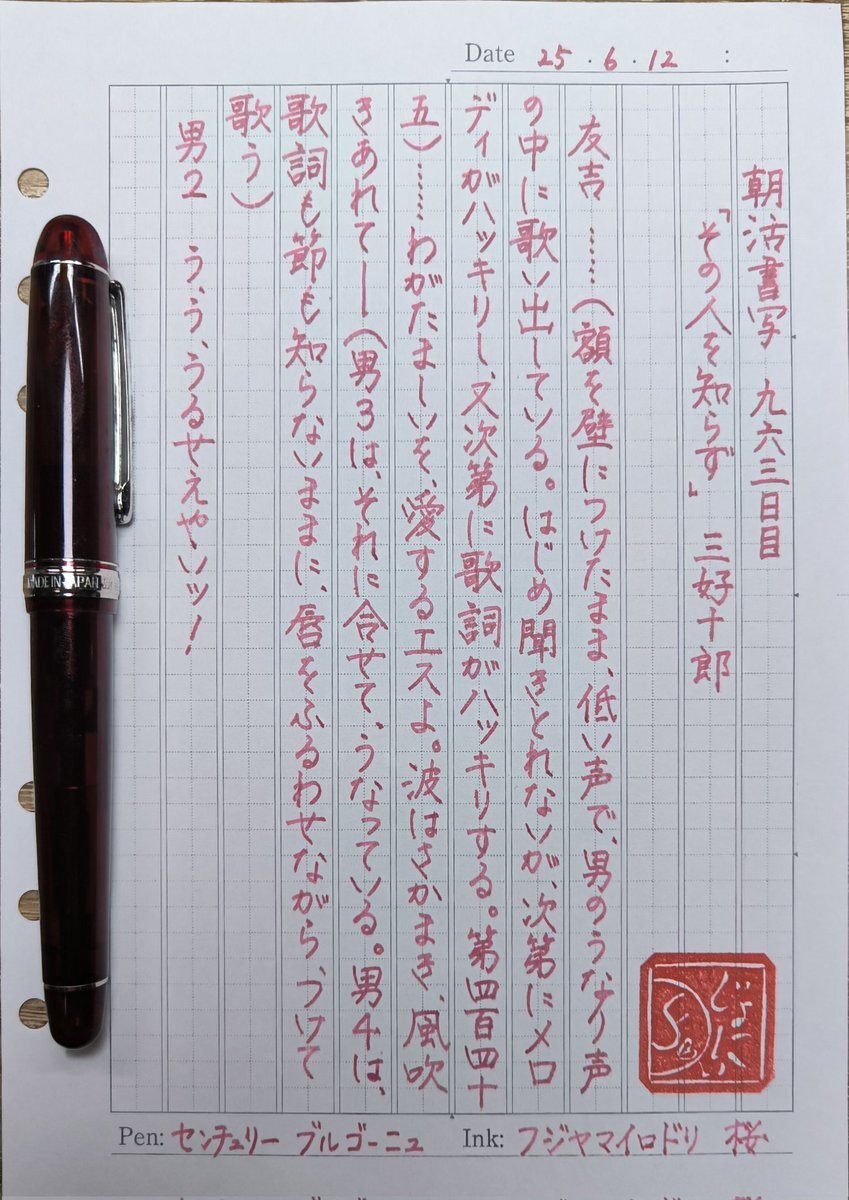 Date 25.6.12 :
朝活書写 九六三日目
「その人を知らず」 三好十郎
友吉 ……(額を壁につけたまま、低い声で、男のうなり声
の中に歌い出している。はじめ聞きとれないが、次第にメロ
ディがハッキリし、又次第に歌詞がハッキリする。第四百四十
五)……わがたましいを、愛するエスよ。波はさかまき、風吹
きあれてー(男3は、それに合せて、うなっている。男4は、
歌詞も節も知らないままに、唇をふるわせながら、つけて
歌う)
男2 う、う、うるせえやいッ!
Pen: センチュリー ブルゴーニュ Ink: フジヤマイロドリ 桜
MADE IN JAPAN